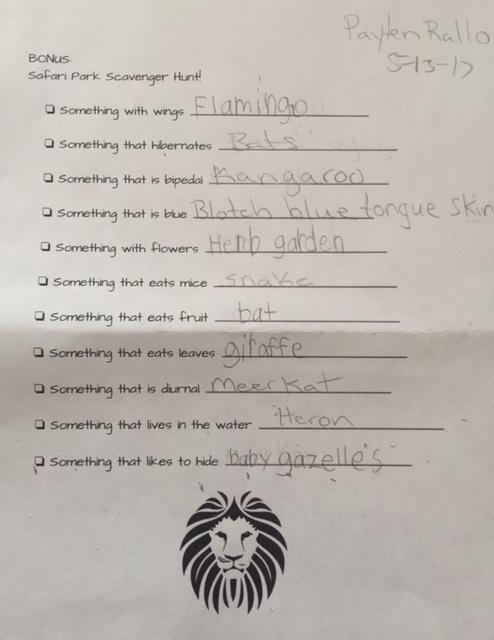 Payten Rallo
5-13-17
BONUS:
Safari Park Scavenger Hunt!
Something with wings Flamingo
Something that hibernates Bats
Something that is bipedal Kangaroo
Something that is blue Blotch blue tongue skin
Something with flowers Herb garden
Something that eats mice snake
Something that eats fruit bat
Something that eats leaves giraffe
Something that is diurnal Meerkat
Something that lives in the water Heron
Something that likes to hide baby gazelle's